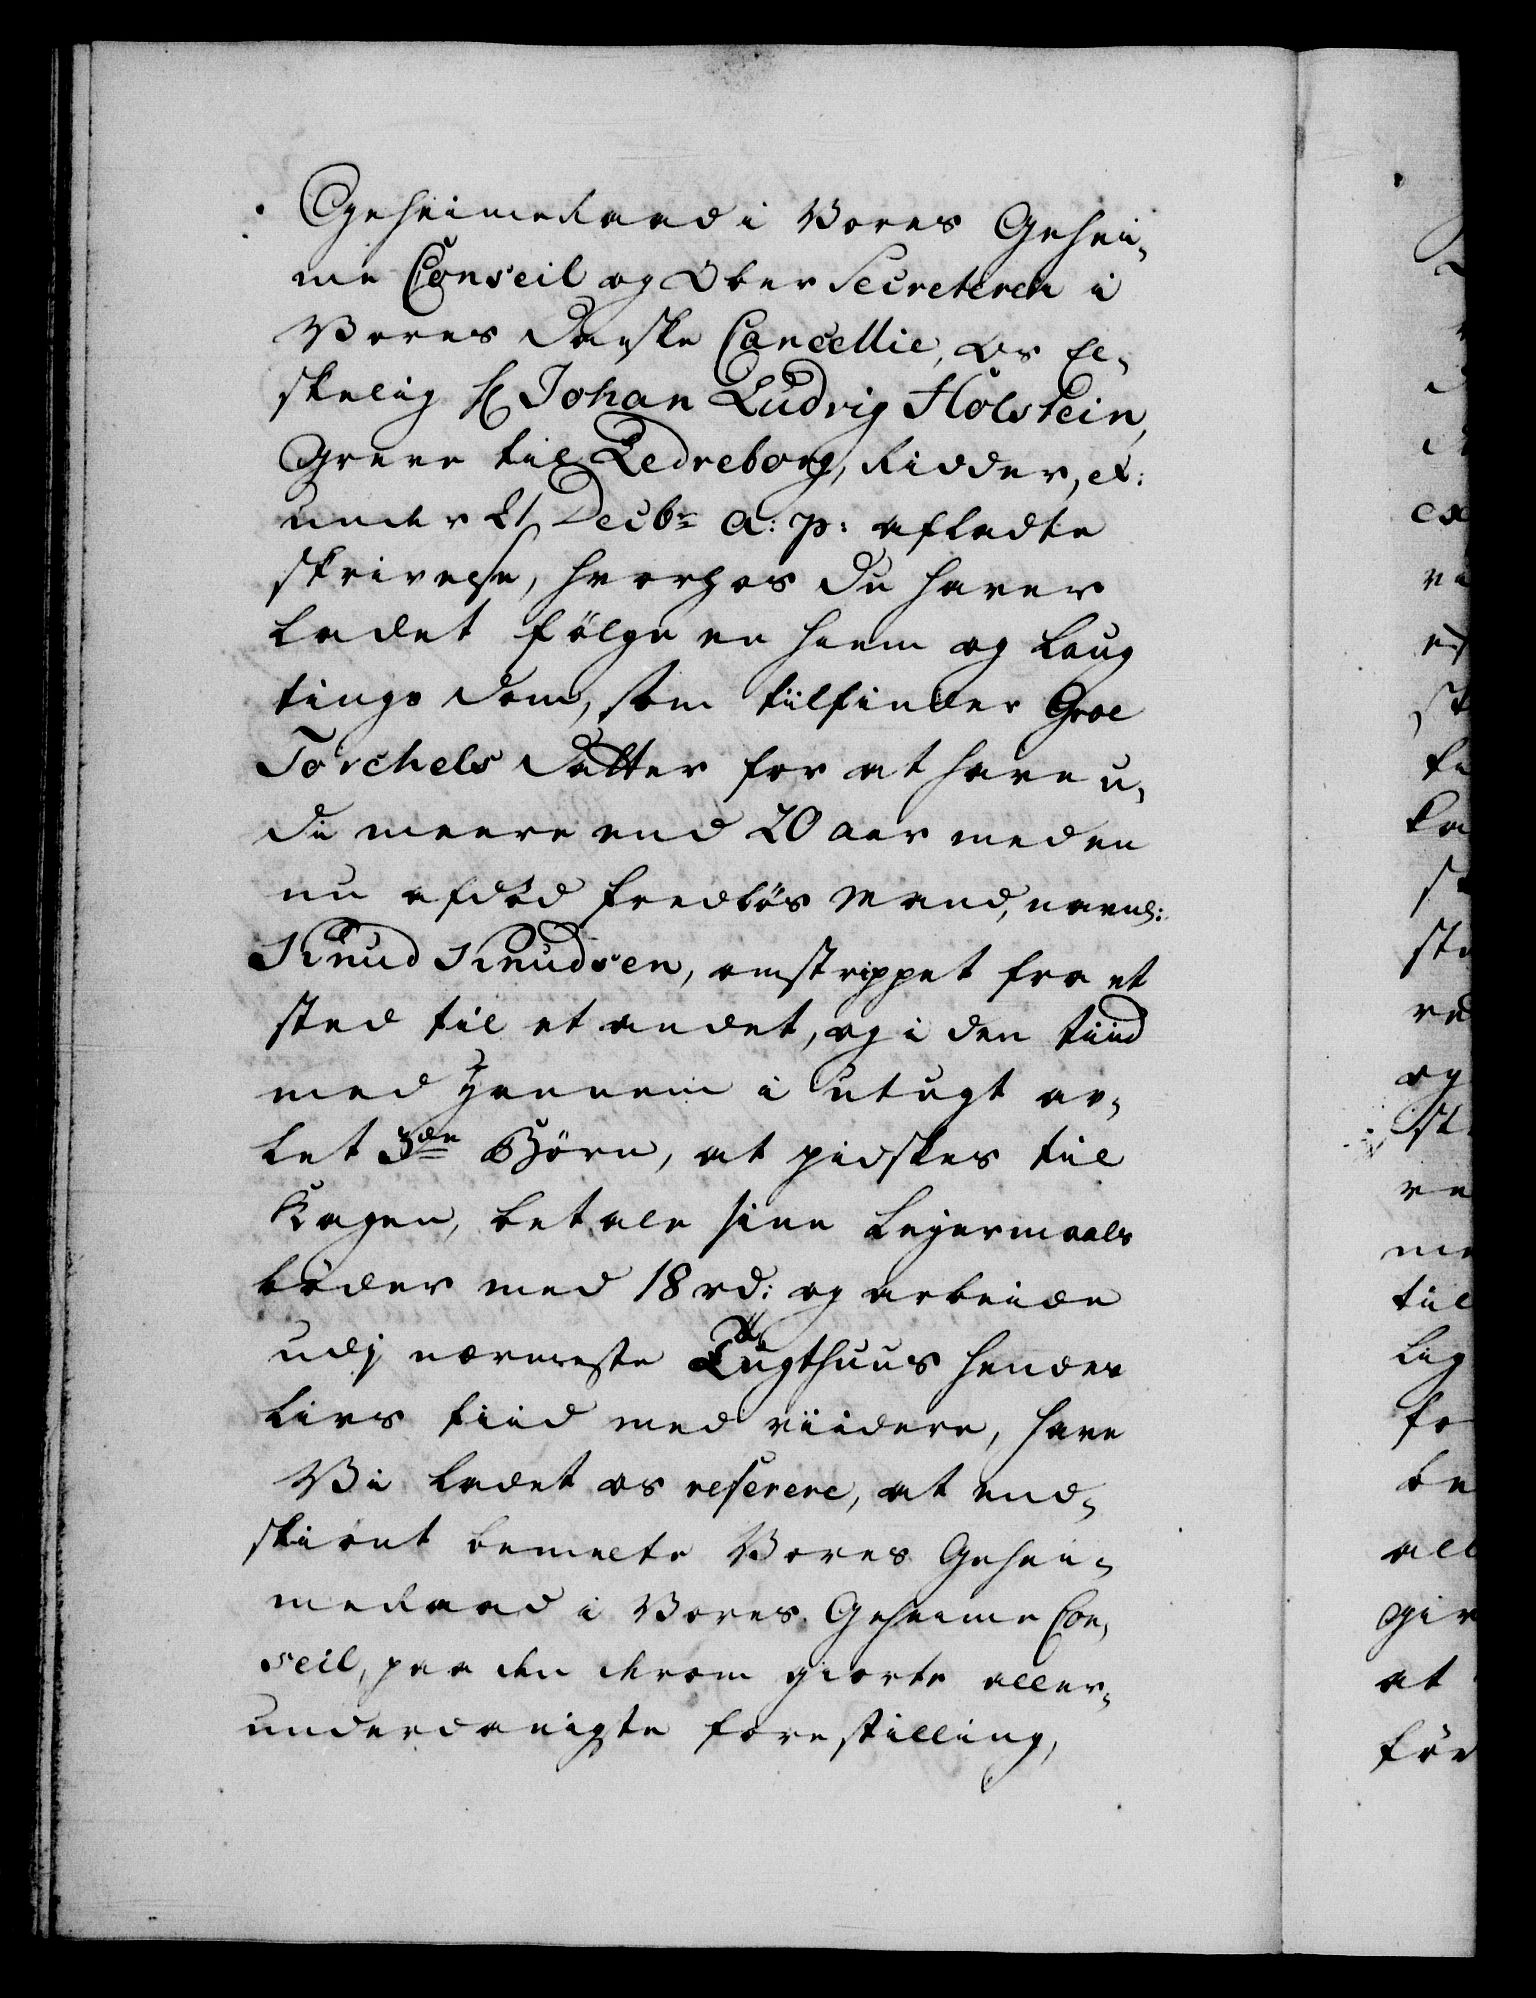 Geheimeraad i Vores Gehei-
me Conseil og Ober Secreteren i
Vores Danske Cancellie, Os El-
skelig Hr Johan Ludvig Holstein,
Greve til Ledreborg, Ridder, etc:
under 21 Decbr a: p: afladte
skrivelse, hvorhos du haver
ladet følge en hiem og laug
tings dom, som tilfinder Groe
Torchels datter for at have u-
di meere end 20 aar med en
nu afdød fredløs Mand, navnl:
Knud Knudsen, omstrippet fra et
sted til et andet, og i den tiid
med hannem i utugt av-
let 3de Børn, at pidskes til
Kagen, betale sine Leyermaals
bøder med 18 rd: og arbeide
udj nærmeste Tugthuus hendes
Livs tiid med viidere, have
Vi ladet os referere, at end-
skiønt bemelte Vores Gehei-
meraad i Vores Geheime Con-
seil, paa den derom giorte aller-
underdanigste forestilling,